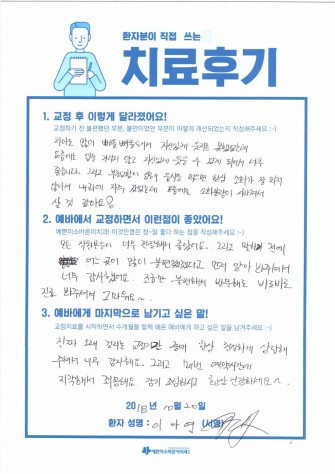 환자분이 직접 쓰는
치료후기
1. 교정 후 이렇게 달라졌어요!
교정하기 전 불편했던 부분, 불만이었던 부분이 어떻게 개선되었는지 작성해주세요 :-)
치아도 많이 삐뚤빼뚤해서 자신있게 웃지를 못했었는데
요즘에는 입을 가리지 않고 자신있게 웃을 수 있게 되어서 너무
좋습니다. 그리고 부정교합이 있어 음식을 먹으면 항상 소화가 잘 되지
않아서 내과에 자주 갔었는데 요즘에는 소화불량이 사라져서
살 것 같아요!
2. 예바에서 교정하면서 이런점이 좋았어요!
예쁜미소바른이치과! 이것만큼은 정~말 좋다 하는 점을 적어주세요 :-)
모든 직원분들이 너무 친절해서 좋았어요. 그리고 말하기 전에
어느 곳이 많이 불편했겠다고 먼저 알아 봐주셔서
너무 감사했어요. 조금만 불편해해도 바로바로
진료 봐주셔서 고마워요~
3. 예바에게 마지막으로 남기고 싶은 말!
교정치료를 시작하면서 수개월을 함께 해온 예바에게 하고 싶은 말을 남겨주세요 :-)
진짜 오래 걸리는 교정기간 동안 항상 친절하게 상담해
주셔서 너무 감사해요. 그리고 매번 예약시간에
지각해서 죄송해요. 감기 조심하시고 항상 건강하세요~
2018년 10월 20일
환자 성명 : 이 하 연 (서명)
예쁜미소바른이치과